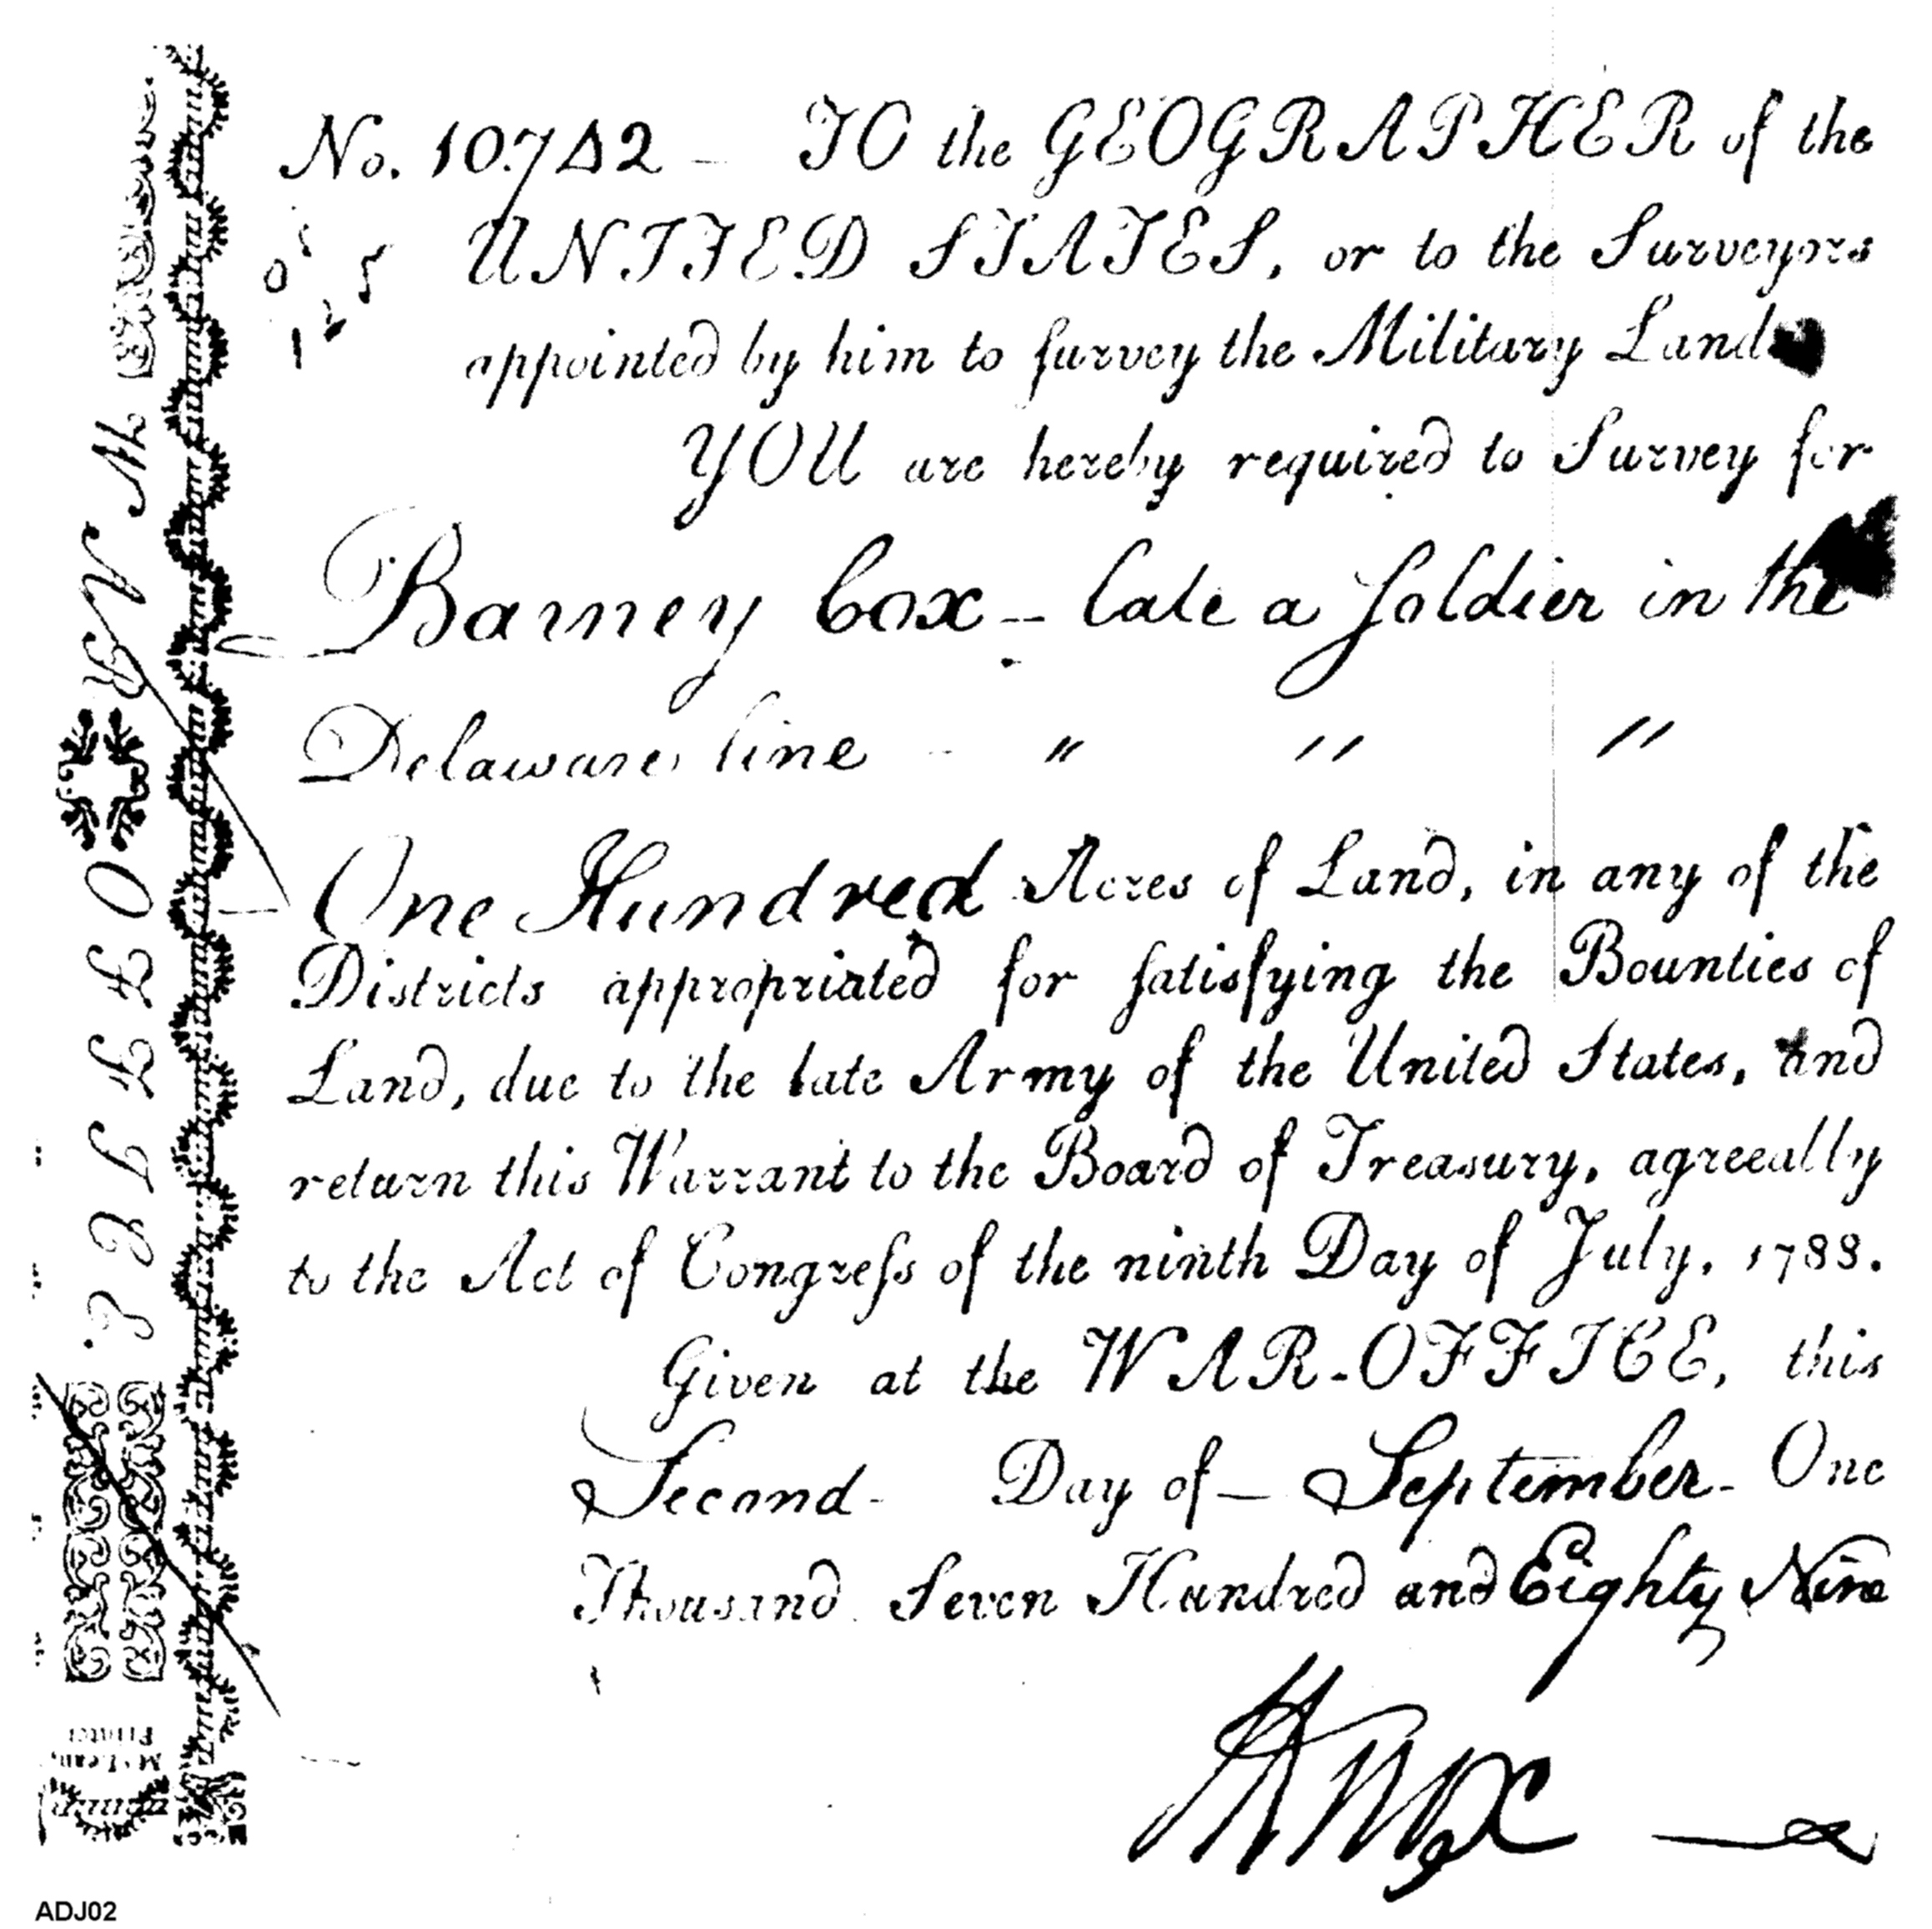 No. 10.742 — TO the GEOGRAPHER of the
UNITED STATES, or to the Surveyors
appointed by him to survey the Military Lands
YOU are hereby required to Survey for
Barney Cox — late a Soldier in the
Delaware line - " " "
One Hundred Acres of Land, in any of the
Districts appropriated for satisfying the Bounties of
Land, due to the late Army of the United States, and
return this Warrant to the Board of Treasury, agreeally
to the Act of Congress of the ninth Day of July, 1788.
Given at the WAR-OFFICE, this
Second - Day of — September - One
Thousand Seven Hundred and Eighty Nine
HKnox
WAR OFFICE
M'Lean,
Printer
ADJ02